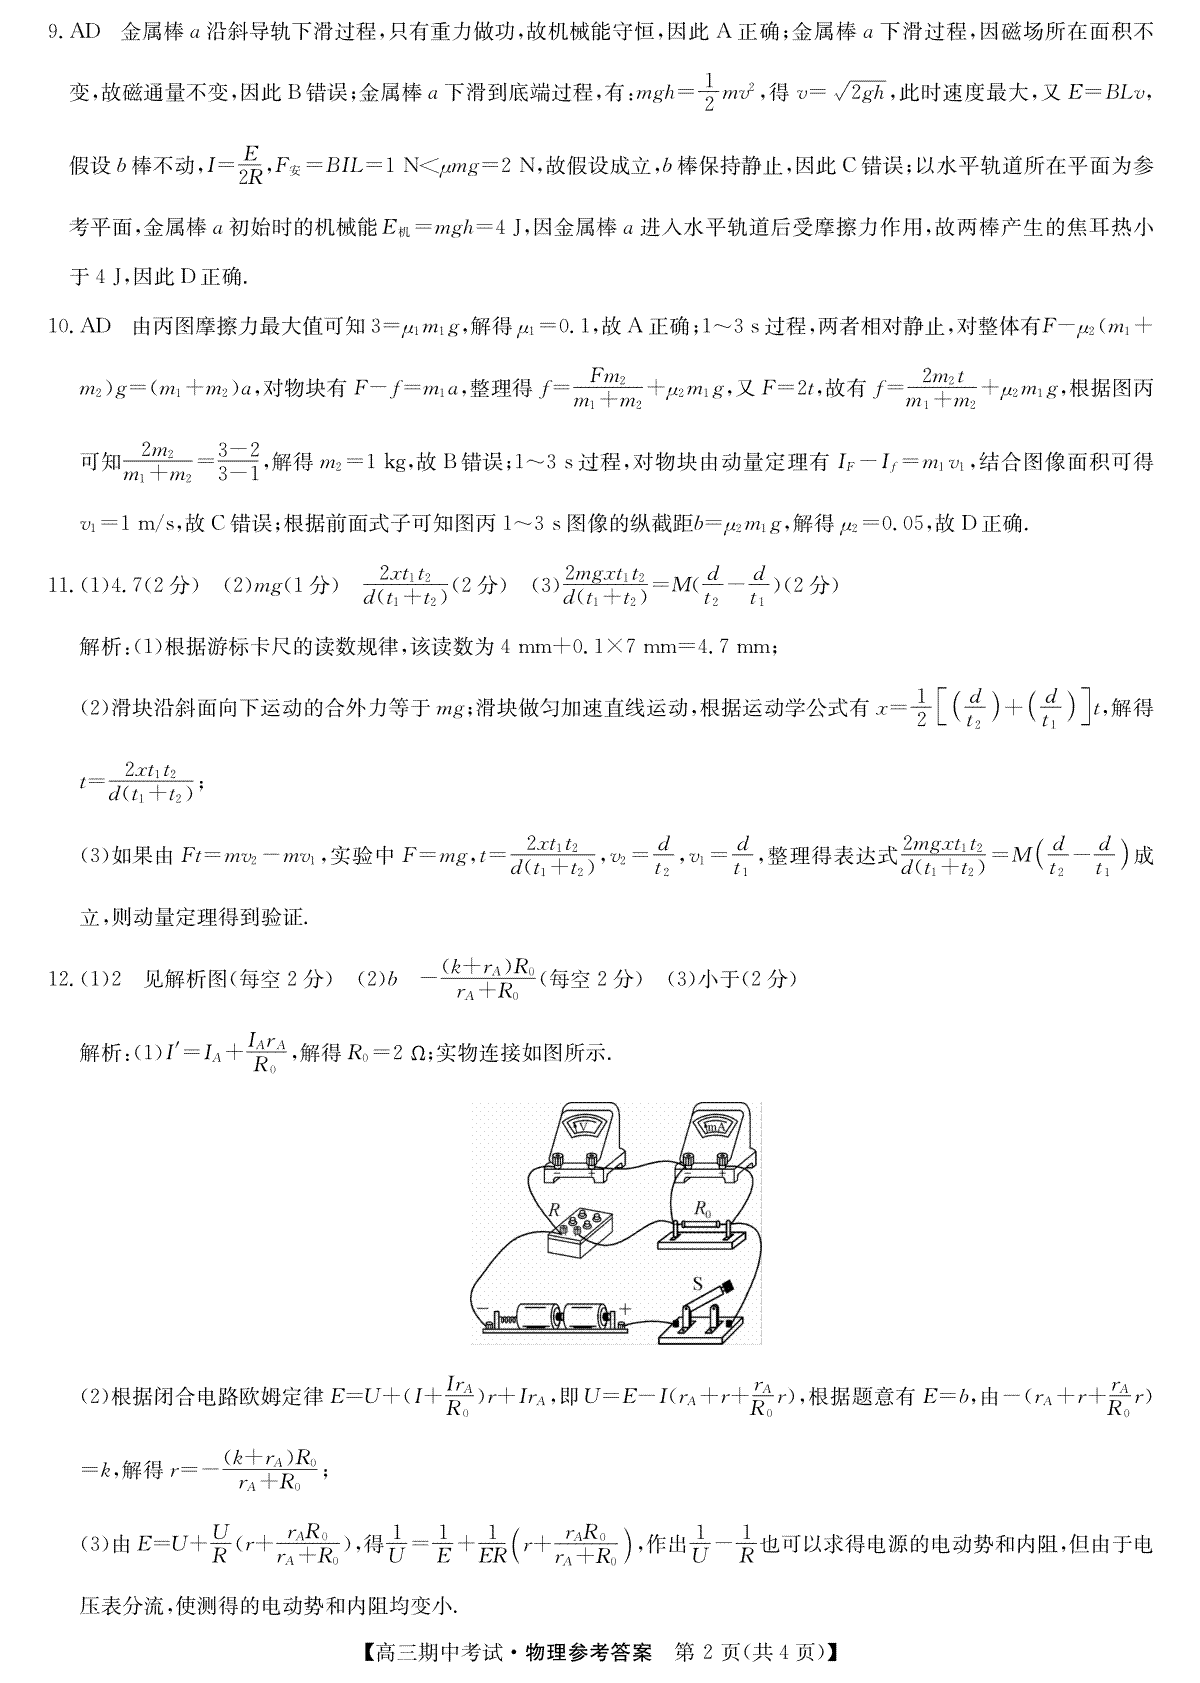 9. AD　金属棒 a 沿斜导轨下滑过程,只有重力做功,故机械能守恒,因此 A 正确;金属棒 a 下滑过程,因磁场所在面积不
变,故磁通量不变,因此 B 错误;金属棒 a 下滑到底端过程,有:mgh=\frac{1}{2}mv²,得 v=\sqrt{2gh},此时速度最大,又 E=BLv,
假设 b 棒不动,I=\frac{E}{2R},F安=BIL=1 N<μmg=2 N,故假设成立,b 棒保持静止,因此 C 错误;以水平轨道所在平面为参
考平面,金属棒 a 初始时的机械能 E机=mgh=4 J,因金属棒 a 进入水平轨道后受摩擦力作用,故两棒产生的焦耳热小
于 4 J,因此 D 正确.
10. AD　由丙图摩擦力最大值可知 3=μ₁m₁g,解得 μ₁=0.1,故 A 正确;1～3 s 过程,两者相对静止,对整体有F−μ₂(m₁+
m₂)g=(m₁+m₂)a,对物块有 F−f=m₁a,整理得 f=\frac{Fm₂}{m₁+m₂}+μ₂m₁g,又 F=2t,故有 f=\frac{2m₂t}{m₁+m₂}+μ₂m₁g,根据图丙
可知\frac{2m₂}{m₁+m₂}=\frac{3−2}{3−1},解得 m₂=1 kg,故 B 错误;1～3 s 过程,对物块由动量定理有 I_F−I_f=m₁v₁,结合图像面积可得
v₁=1 m/s,故 C 错误;根据前面式子可知图丙 1～3 s 图像的纵截距b=μ₂m₁g,解得 μ₂=0.05,故 D 正确.
11. (1)4.7(2 分)　(2)mg(1 分)　\frac{2xt₁t₂}{d(t₁+t₂)}(2 分)　(3)\frac{2mgxt₁t₂}{d(t₁+t₂)}=M(\frac{d}{t₂}−\frac{d}{t₁})(2 分)
解析:(1)根据游标卡尺的读数规律,该读数为 4 mm+0.1×7 mm=4.7 mm;
(2)滑块沿斜面向下运动的合外力等于 mg;滑块做匀加速直线运动,根据运动学公式有 x=\frac{1}{2}[(\frac{d}{t₂})+(\frac{d}{t₁})]t,解得
t=\frac{2xt₁t₂}{d(t₁+t₂)};
(3)如果由 Ft=mv₂−mv₁,实验中 F=mg,t=\frac{2xt₁t₂}{d(t₁+t₂)},v₂=\frac{d}{t₂},v₁=\frac{d}{t₁},整理得表达式\frac{2mgxt₁t₂}{d(t₁+t₂)}=M(\frac{d}{t₂}−\frac{d}{t₁})成
立,则动量定理得到验证.
12. (1)2　见解析图(每空 2 分)　(2)b　−\frac{(k+r_A)R₀}{r_A+R₀}(每空 2 分)　(3)小于(2 分)
解析:(1)I′=I_A+\frac{I_Ar_A}{R₀},解得 R₀=2 Ω;实物连接如图所示.
V
mA
− +
− +
R
R₀
S
− +
(2)根据闭合电路欧姆定律 E=U+(I+\frac{Ir_A}{R₀})r+Ir_A,即 U=E−I(r_A+r+\frac{r_A}{R₀}r),根据题意有 E=b,由−(r_A+r+\frac{r_A}{R₀}r)
=k,解得 r=−\frac{(k+r_A)R₀}{r_A+R₀};
(3)由 E=U+\frac{U}{R}(r+\frac{r_AR₀}{r_A+R₀}),得\frac{1}{U}=\frac{1}{E}+\frac{1}{ER}(r+\frac{r_AR₀}{r_A+R₀}),作出\frac{1}{U}−\frac{1}{R}也可以求得电源的电动势和内阻,但由于电
压表分流,使测得的电动势和内阻均变小.
【高三期中考试·物理参考答案　第 2 页(共 4 页)】